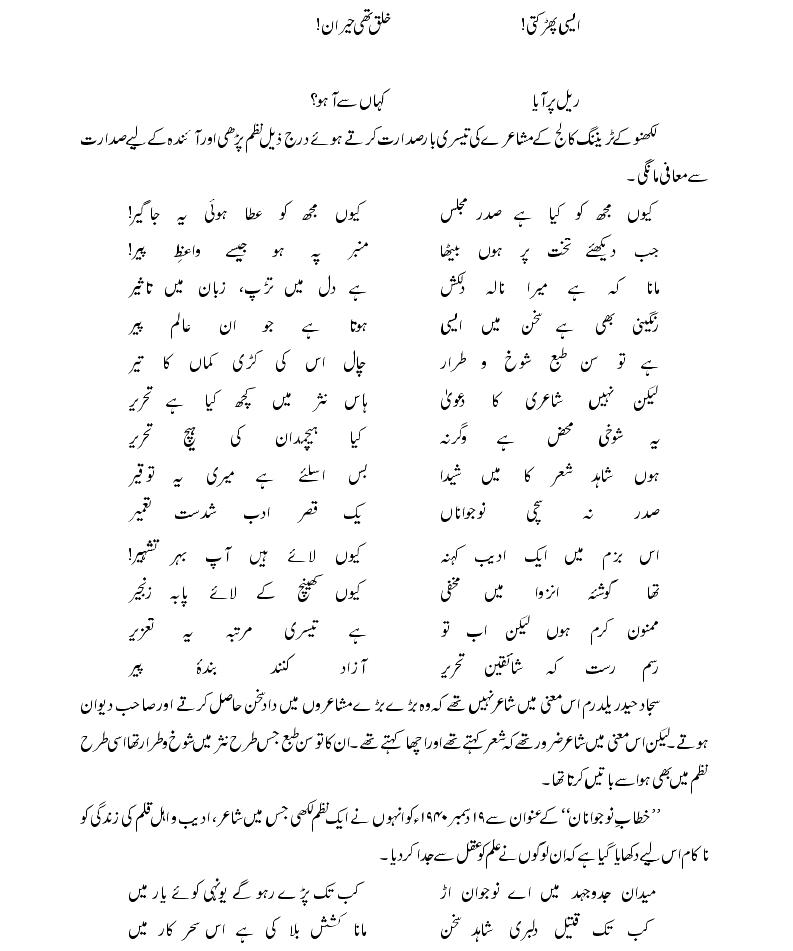 ایسی پھڑکتی! خلق تھی حیران!
ریل پر آیا کہاں سے آہو؟
لکھنو کے ٹریننگ کالج کے مشاعرے کی تیسری بار صدارت کرتے ہوئے درج ذیل نظم پڑھی اور آئندہ کے لیے صدارت
سے معافی مانگی۔
کیوں مجھ کو کیا ہے صدر مجلس کیوں مجھ کو عطا ہوئی یہ جاگیر!
جب دیکھئے تخت پر ہوں بیٹھا منبر پہ ہو جیسے واعظِ پیر!
مانا کہ ہے میرا نالہ دلکش ہے دل میں تڑپ، زبان میں تاثیر
رنگینی بھی ہے سخن میں ایسی ہوتا ہے جو ان عالم پیر
ہے تو سن طبع شوخ و طرار چال اس کی کڑی کماں کا تیر
لیکن نہیں شاعری کا دعویٰ ہاں نثر میں کچھ کیا ہے تحریر
یہ شوخی محض ہے وگرنہ کیا ہیچمدان کی ہیچ تحریر
ہوں شاہد شعر کا میں شیدا بس اسلئے ہے میری یہ توقیر
صدر نہ سچی نوجواناں یک قصر ادب شدست تعمیر
اس بزم میں ایک ادیب کہنہ کیوں لائے ہیں آپ بہر تشہیر!
تھا گوشئہ انزوا میں مخفی کیوں کھینچ کے لائے پابہ زنجیر
ممنون کرم ہوں لیکن اب تو ہے تیسری مرتبہ یہ تعزیر
رسم رست کہ شائقین تحریر آزاد کنند بندۂ پیر
سجاد حیدر یلدرم اس معنی میں شاعر نہیں تھے کہ وہ بڑے بڑے مشاعروں میں داد سخن حاصل کرتے اور صاحب دیوان
ہوتے۔ لیکن اس معنی میں شاعر ضرور تھے کہ شعر کہتے تھے اور اچھا کہتے تھے۔ ان کا تو سن طبع جس طرح نثر میں شوخ و طرار تھا اسی طرح
نظم میں بھی ہوا سے باتیں کرتا تھا۔
’’خطابِ نوجوانان‘‘ کے عنوان سے ۱۹ دسمبر ۱۹۴۰ء کو انہوں نے ایک نظم لکھی جس میں شاعر، ادیب و اہل قلم کی زندگی کو
ناکام اس لیے دکھایا گیا ہے کہ ان لوگوں نے علم کو عقل سے جدا کر دیا۔
میدان جدوجہد میں اے نوجوان اڑ کب تک پڑے رہو گے یونہی کوئے یار میں
کب تک قتیل دلبری شاہد سخن مانا کشش بلا کی ہے اس سحر کار میں